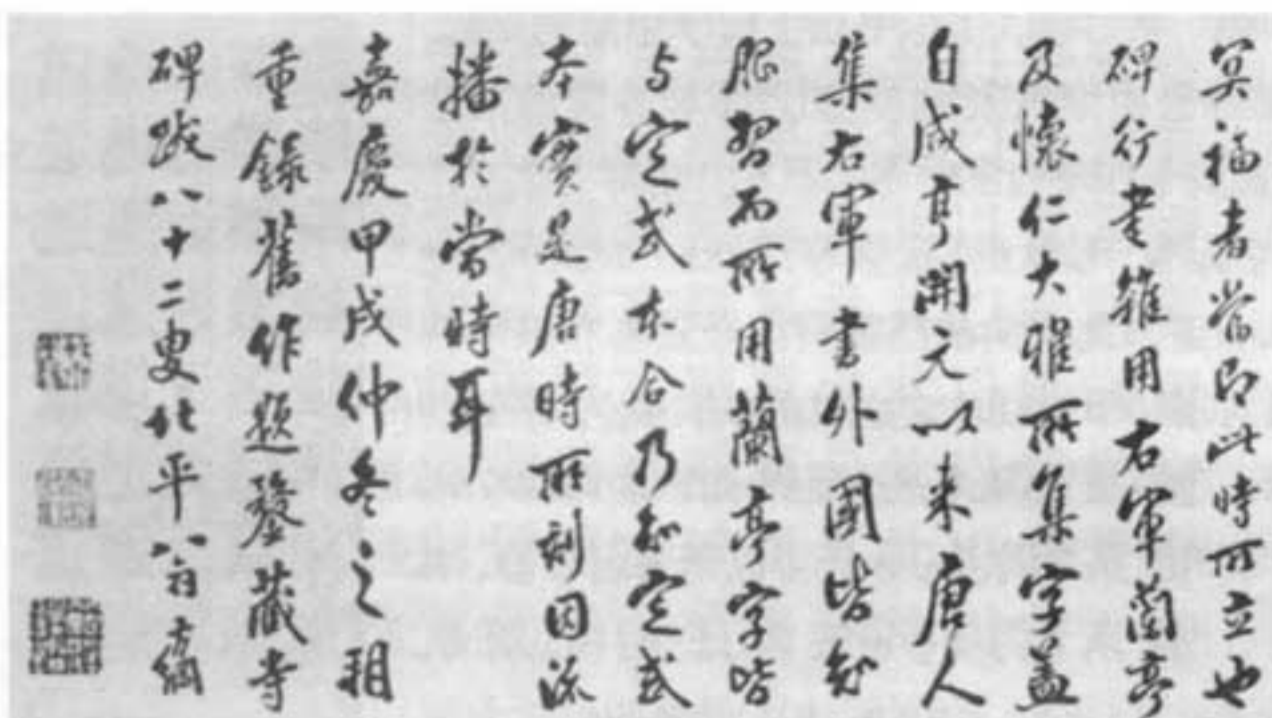 冥福者當即此時所立也
碑行書雜用右軍蘭亭
及懷仁大雅所集字蓋
自咸亨開元以來唐人
集右軍書外國皆知
服習而所用蘭亭字皆
与定武本合乃知定武
本實是唐時所刻因流
播於當時耳
嘉慶甲戌仲冬之朔
重錄舊作題鍪藏寺
碑跋八十二叟北平翁方綱